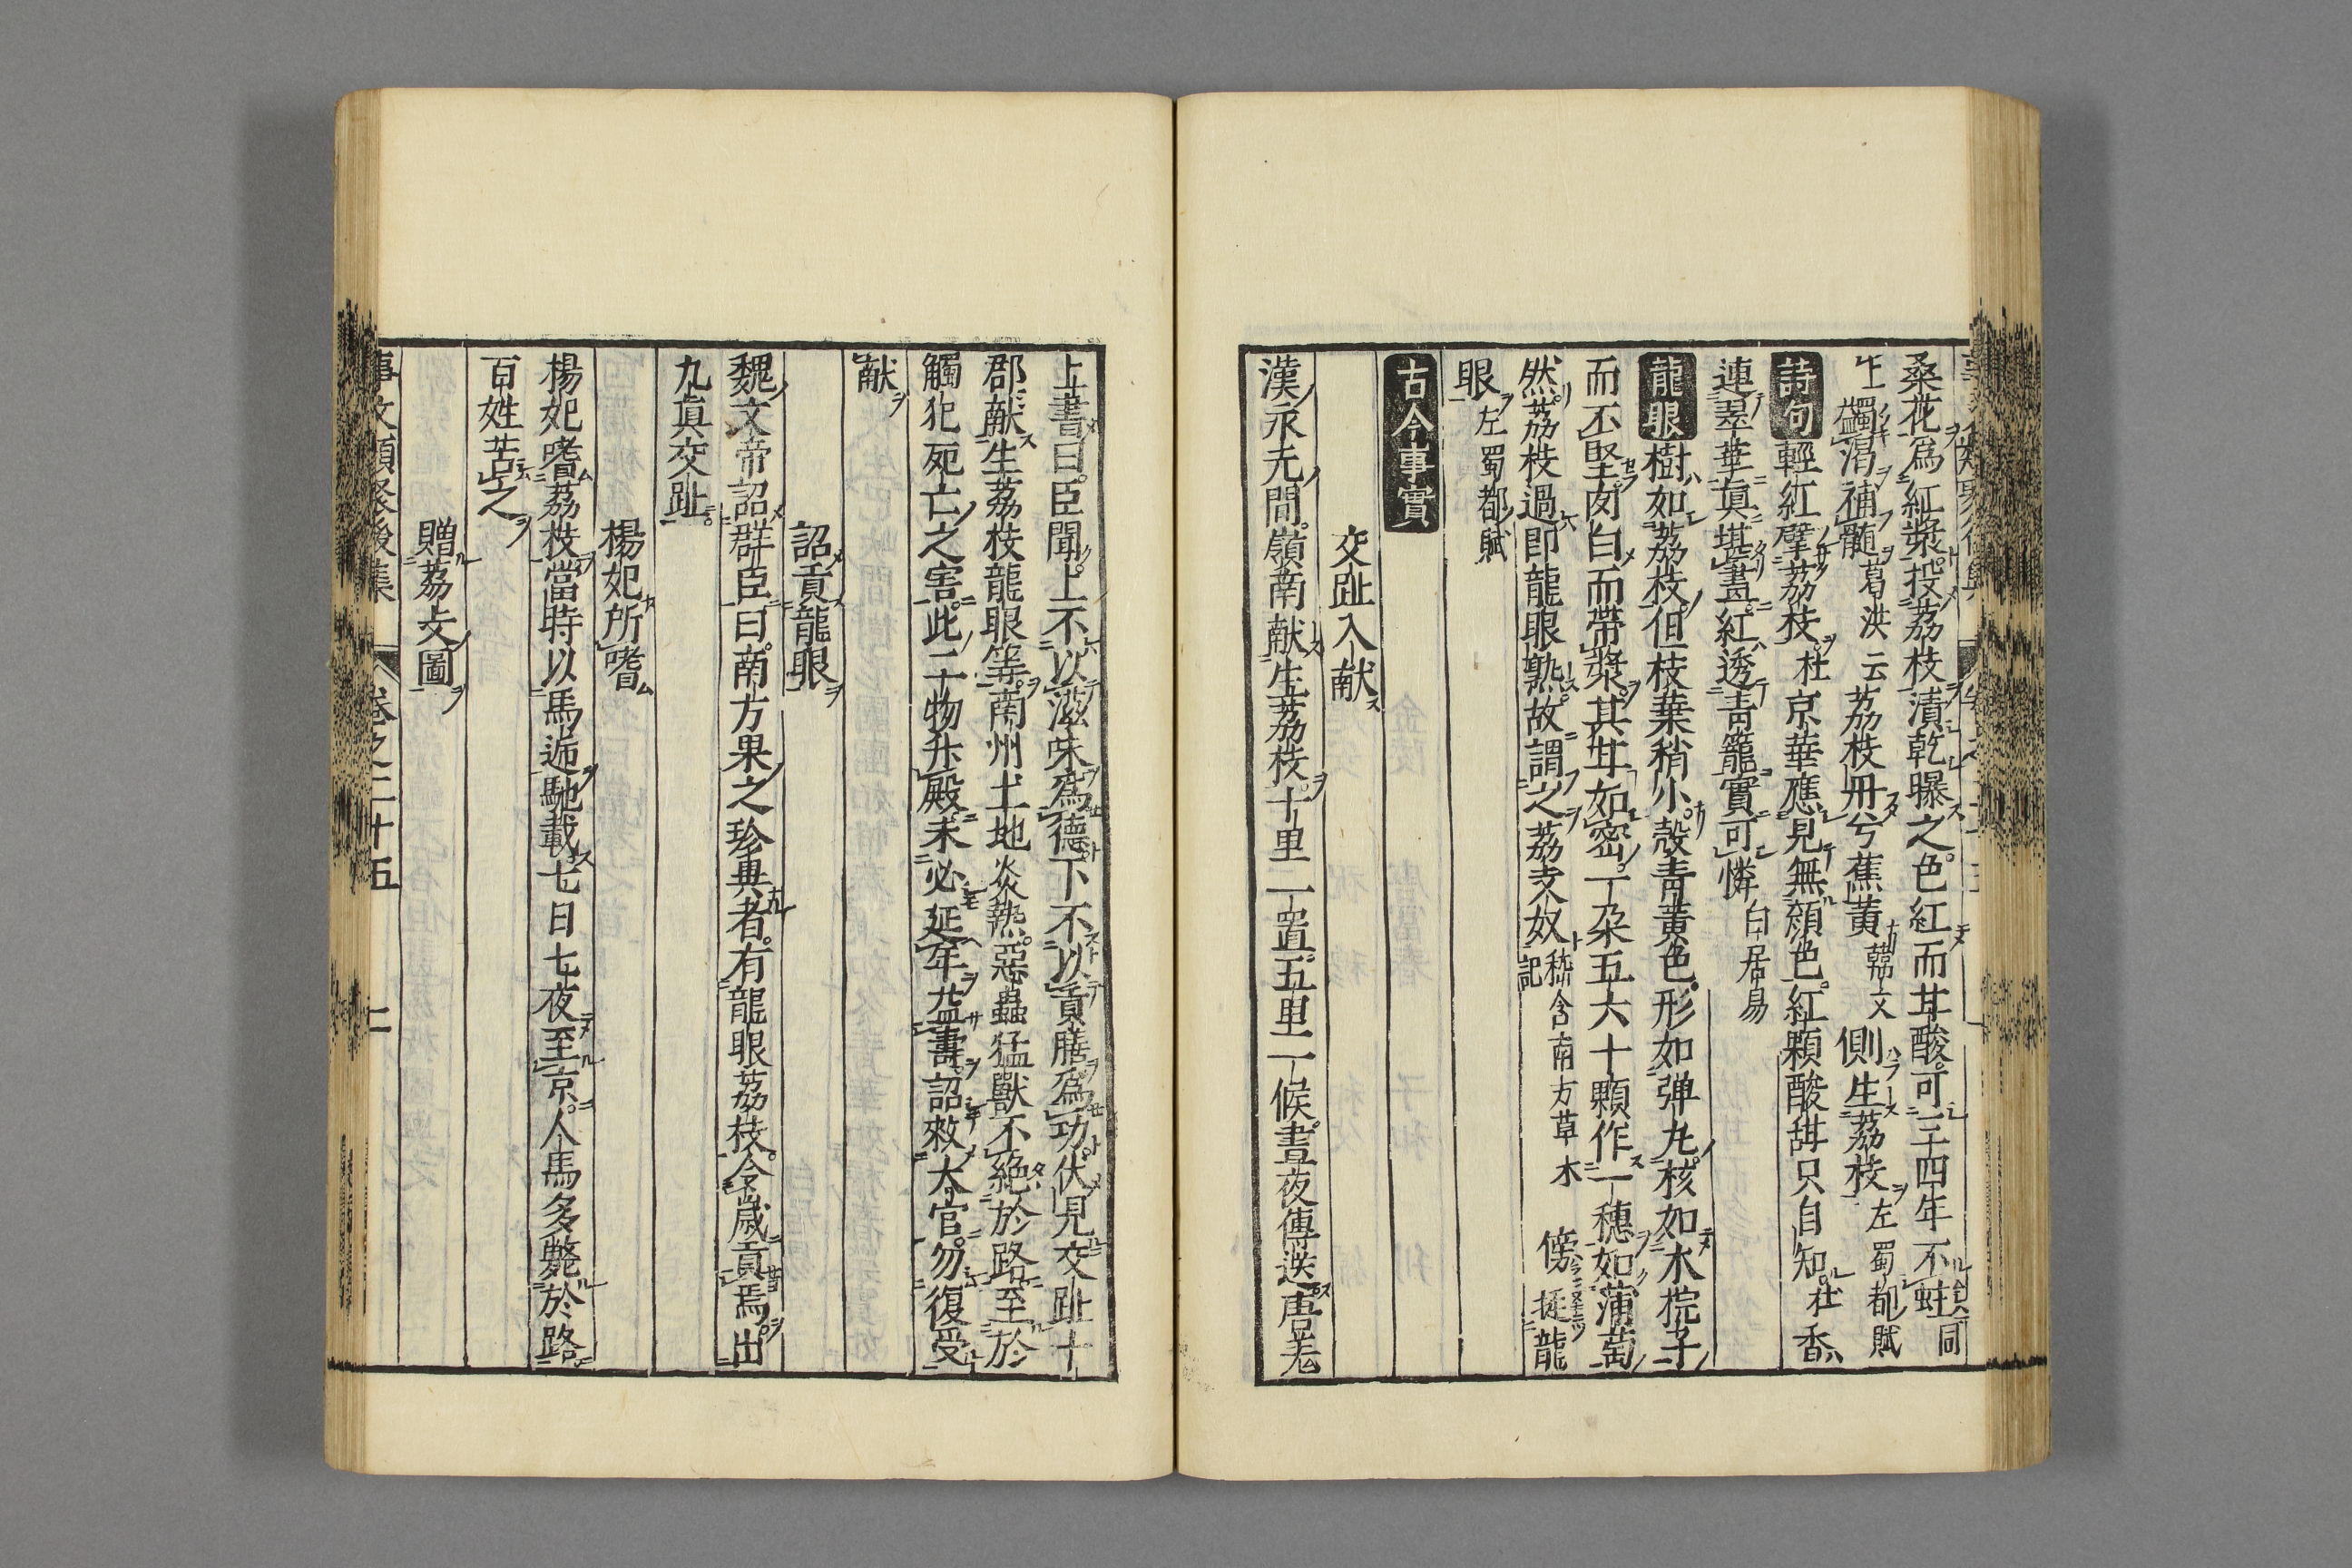 桑花爲紅漿投荔枝漬乾曝之色紅而甘酸可三四年不蛀同
上蠲渴補髓葛洪云荔枝册兮蕉黄韓文側生荔枝左蜀都賦
詩句輕紅擘荔枝杜京華應見無顔色紅顆酸甜只自知杜香
連翠華眞堪畫紅透青籠實可憐白居易
龍眼樹如荔枝但枝葉稍小殼青黄色形如彈丸核如木梡子
而不堅肉白而帶漿其甘如密一朶五六十顆作一穗如蒲萄
然荔枝過即龍眼熟故謂之荔支奴嵇含南方草木記傍挺龍
眼左蜀都賦
古今事實
交趾入献
漢永元間嶺南献生荔枝十里一置五里一候晝夜傳送唐羌
上書曰臣聞上不以滋味爲德下不以貢膳爲功伏見交趾十
郡献生荔枝龍眼等南州土地炎熱惡蟲猛獸不絶於路至於
觸犯死亡之害此二物升殿未必延年益壽詔敕太官勿復受
献
詔貢龍眼
魏文帝詔群臣曰南方果之珍異者有龍眼荔枝令歳貢焉出
九眞交趾
楊妃所嗜
楊妃嗜荔枝當時以馬逓馳載七日七夜至京人馬多斃於路
百姓苦之
贈荔支圖
事文類聚後集 卷之二十五 二